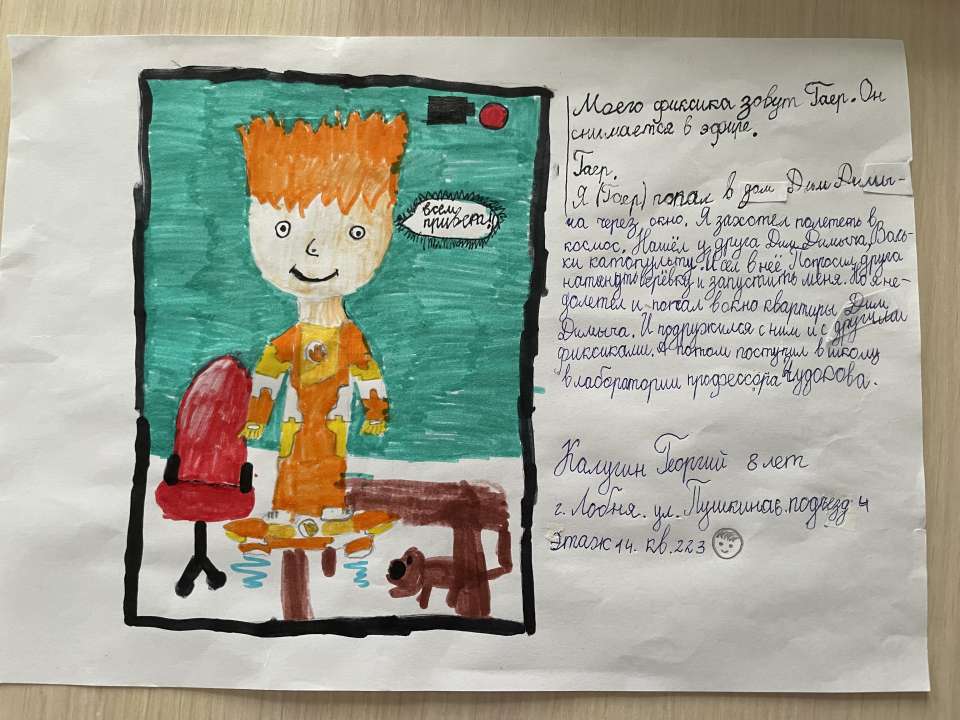 всем
привера!
Моего фиксика зовут Гаер. Он
снимается в эфире.
Гаер.
Я (Гаер) попал в дом Дим Димы-
ча через окно. Я захотел полететь в
космос. Нашёл у друга Дим Димыча, Вовь-
ки катопульту. И сел в неё. Попросил друга
натянуть верёвку и запустить меня. Но я не-
долетел и попал в окно квартиры Дим
Димыча. И подружился с ним и с другими
фиксиками. А потом поступил в школу
в лаборатории профессора Чудокова.
Калугин Георгий 8 лет
г. Лобня. ул. Пушкина6. подъезд 4
Этаж 14. кв. 223